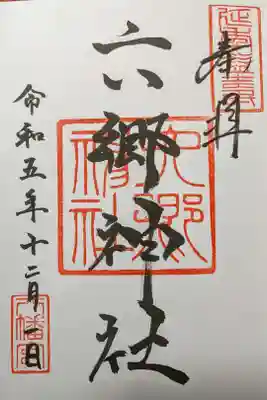 奉拝
六郷神社
六郷神社
令和五年十二月一日
八幡宮